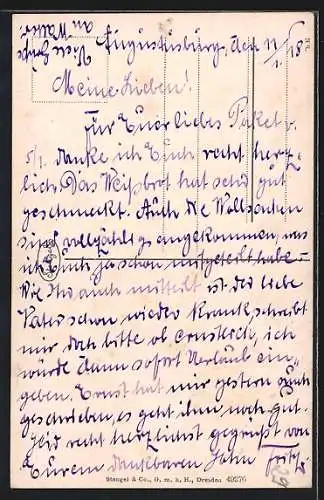 Viele Grüße
an Walter
Augustusburg, den 11/1. 18
Meine Lieben!
Für Euer liebes Paket v.
5/1. danke ich Euch recht herz-
lich. Das Weißbrot hat sehr gut
geschmeckt. Auch die Wollsachen
sind vollzählig angekommen, was
ich Euch ja schon mitgeteilt habe –
Wie Ihr auch mitteilt ist der liebe
Vater schon wieder krank, schreibt
mir doch bitte ob ernstlich, ich
würde dann sofort Urlaub ein-
geben. Ernst hat mir gestern auch
geschrieben, es geht ihm noch gut.
Seid recht herzlichst gegrüßt von
Eurem dankbaren Sohn Fritz.
Stengel & Co., G. m. b. H., Dresden 49276